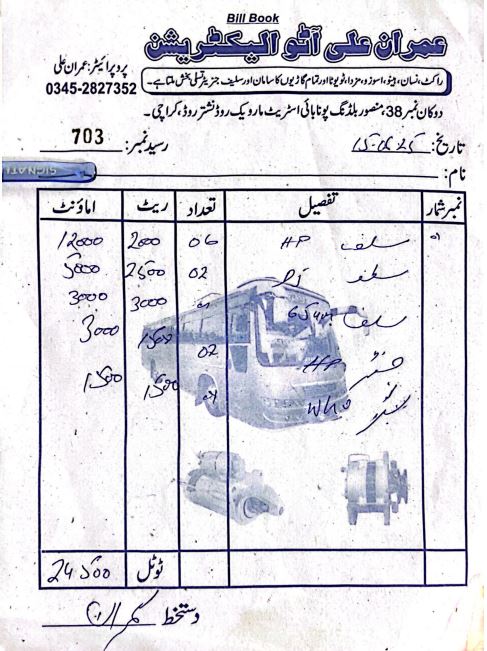 Bill Book
عمران علی آٹو الیکٹریشن
پروپرائیٹر: عمران علی
0345-2827352
راکٹ، نسان، ہینو، اسوزو، مزدا، ٹویوٹا اور تمام گاڑیوں کا سامان اور سلیف جنریٹر تسلی بخش ملتا ہے۔
دوکان نمبر 38، منصور بلڈنگ پونا بائی اسٹریٹ مارویک روڈ نشتر روڈ، کراچی۔
رسید نمبر: 703 تاریخ:
نام:
نمبر شمار تفصیل تعداد ریٹ اماؤنٹ
سلف HP 06 2000 12000
02 2500 5000
سلف 01 3000 3000
HP 02 1500 3000
01 1500 1500
ٹوٹل 24500
دستخط